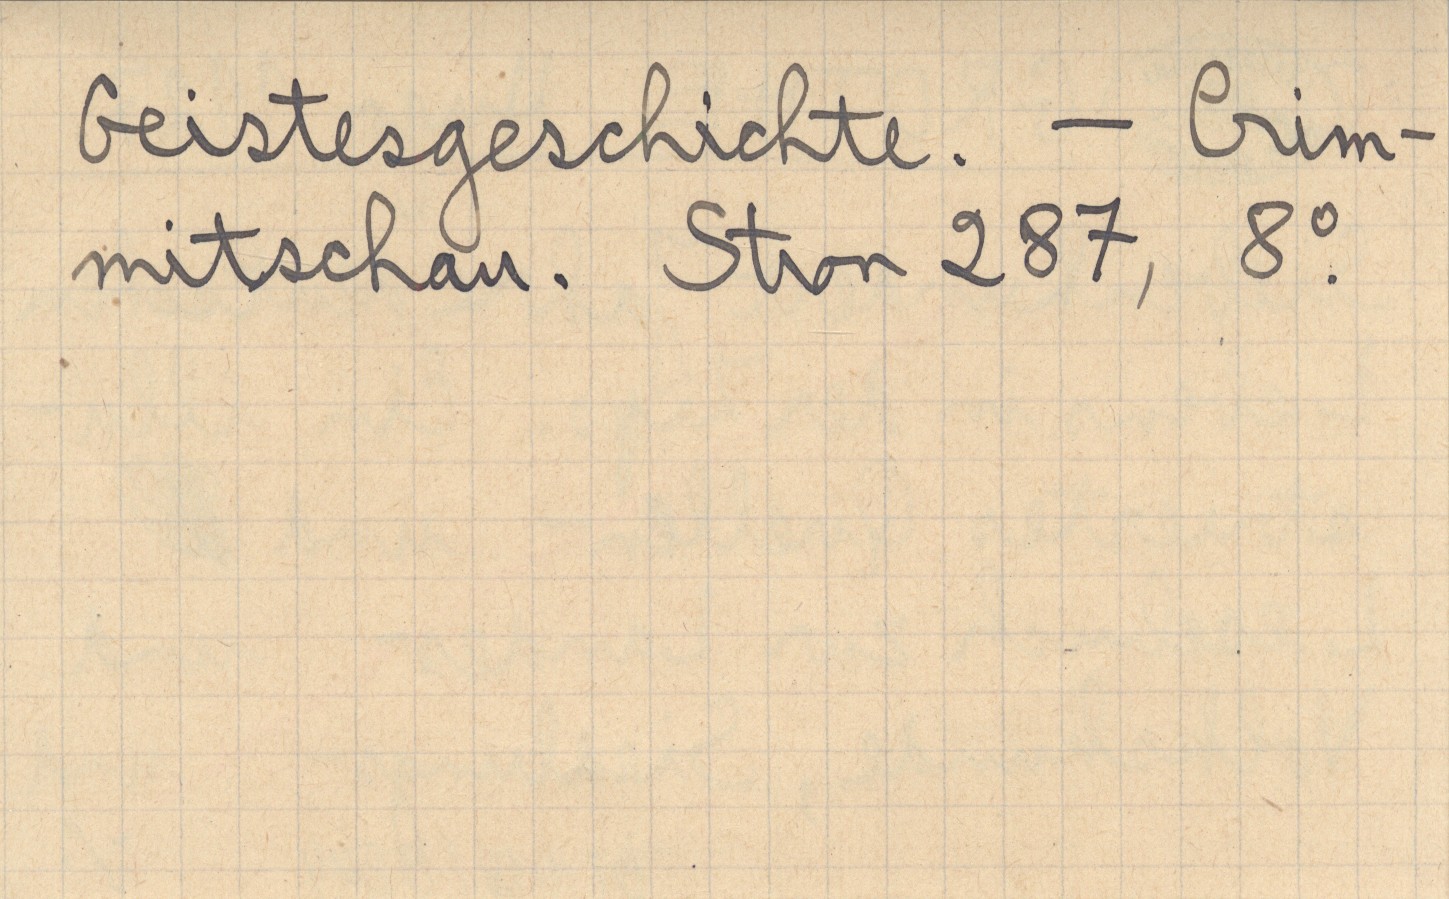 Geistesgeschichte. — Crim-
mitschau. Stron 287, 8º.